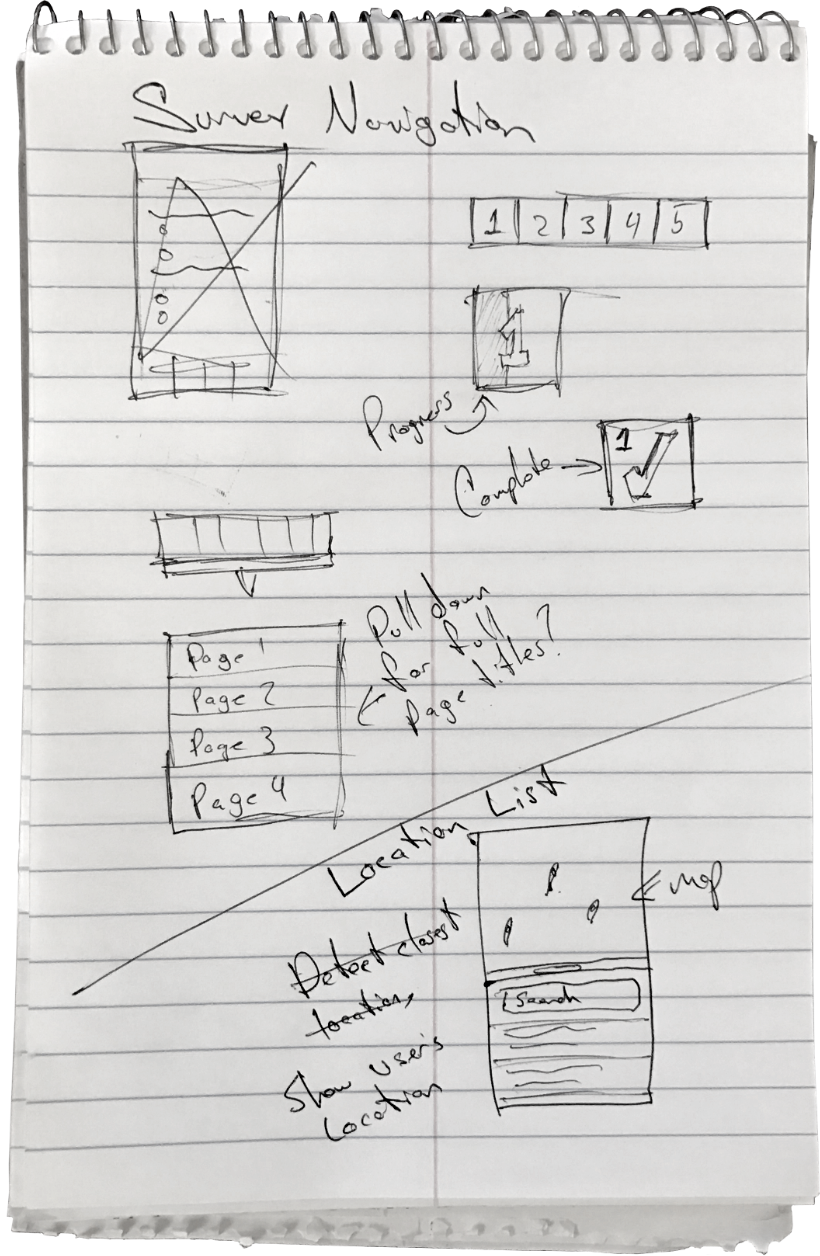 Survey Navigation
1 2 3 4 5
1
Progress
Complete
1
Pull down
for full
page titles?
Page 1
Page 2
Page 3
Page 4
Location List
map
Detect closest
location,
Search
Show user's
Location